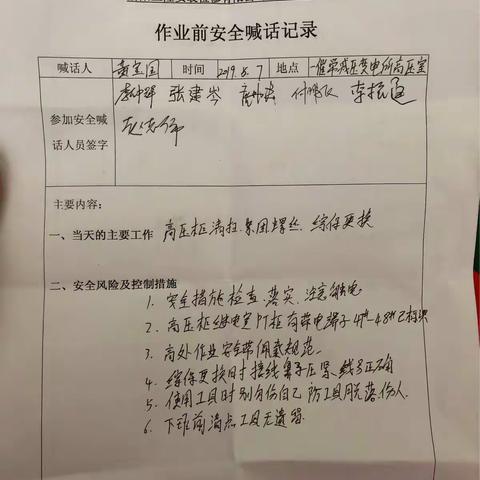 作业前安全喊话记录
喊话人 黄宝国 时间 2019.5.7 地点 一催柴减压变电所高压室
张建岑 李振通
参加安全喊
话人员签字
主要内容:
一、当天的主要工作 高压柜清扫.紧固螺丝. 综保更换
二、安全风险及控制措施
1. 安全措施检查.落实.注意触电
2. 高压柜继电室PT柜有带电端子47#-48#已标识
3. 高处作业安全带佩戴规范.
4 综保更换时接线端子压紧.线号正确
5 使用工具时别自伤自己 防工具脱落.伤人.
6. 下班前清点工具无遗留.